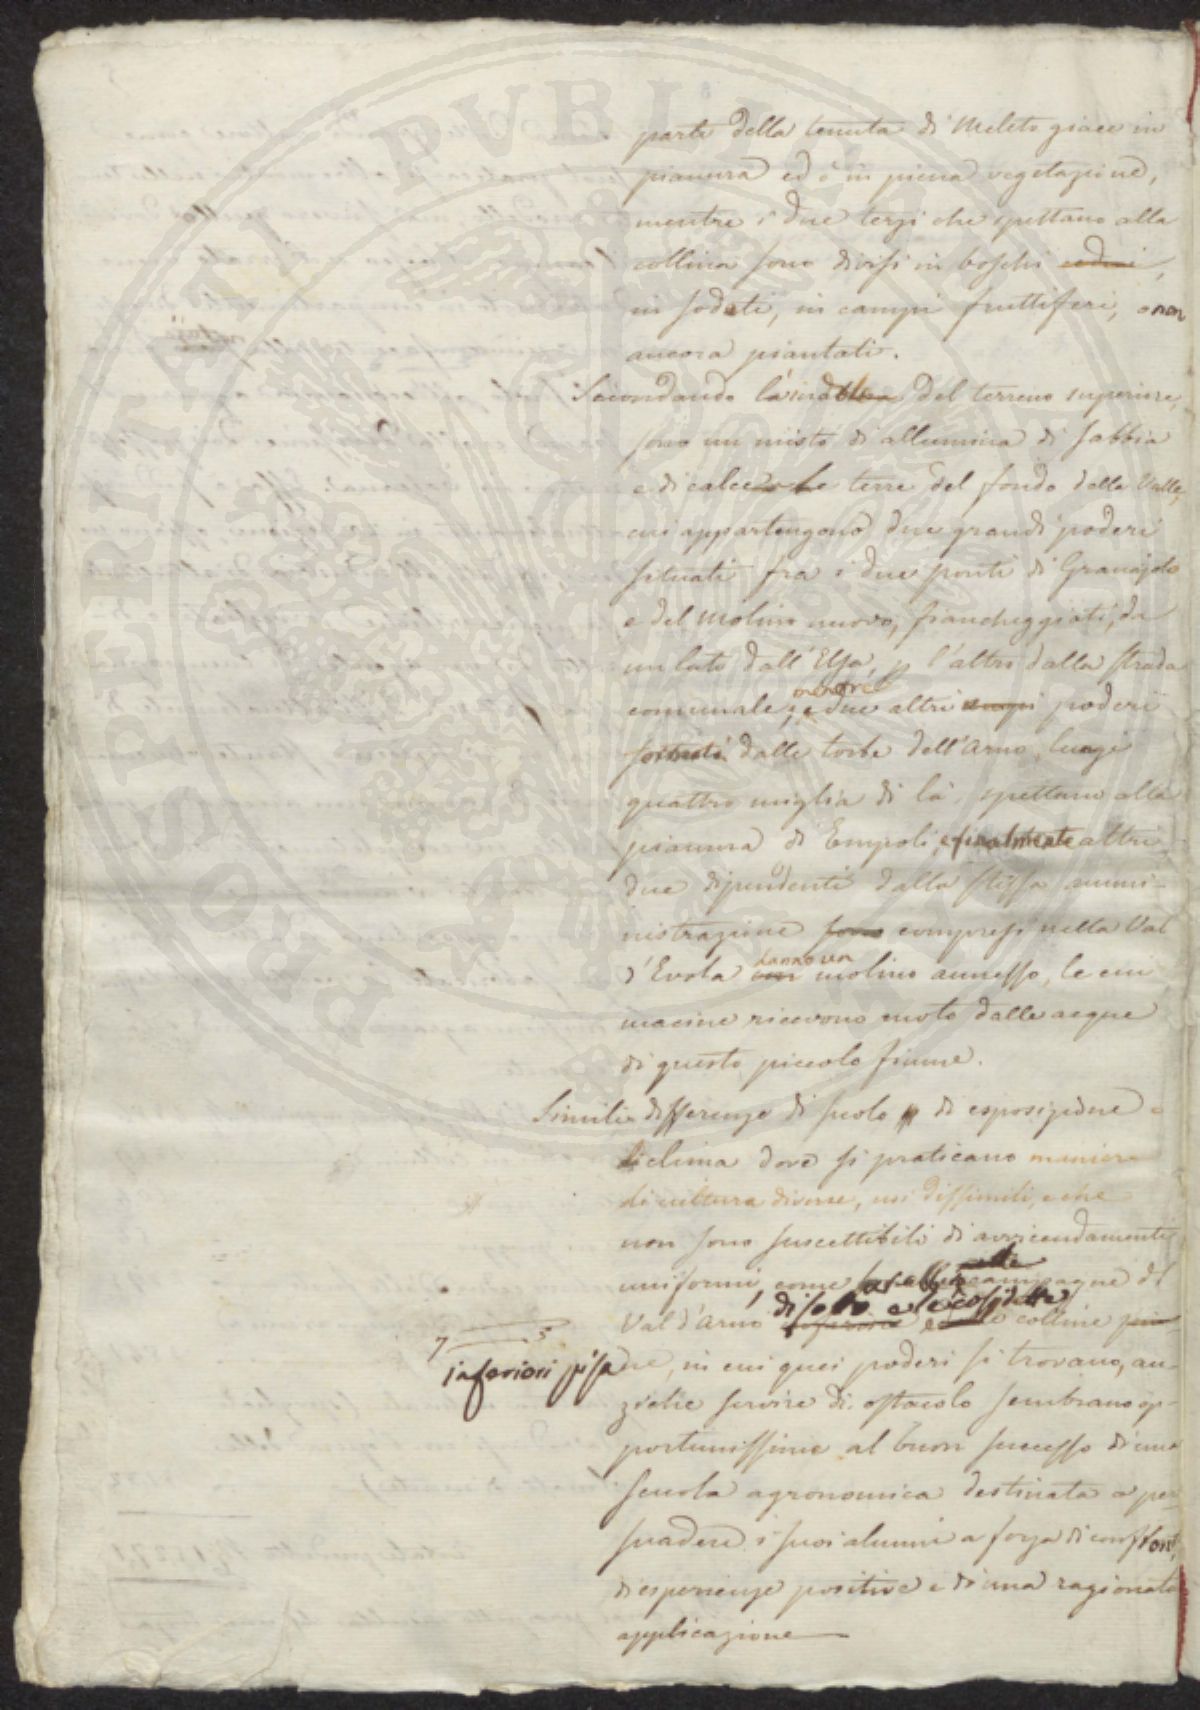 parte della tenuta di Meleto giace in
pianura ed è in piena vegetazione,
mentre i due terzi che spettano alla
collina sono divisi in boschi cedui,
in sodati, in campi fruttiferi, o non
ancora piantati.
Secondando la del terreno superiore,
sono un misto di allumina di sabbia
e di calce le terre del fondo della Valle,
cui appartengono due grandi poderi
situati fra i due ponti di Granajolo
e del Molino nuovo, fiancheggiati, da
un lato dall'Elsa, l'altro dalla strada
mentre
comunale, due altri ampi poderi
formati dalle torbe dell'Arno, lungi
quattro miglia di là, spettano alla
pianura di Empoli, e finalmente altri
due dipendenti dalla stessa ammi-
nistrazione sono compresi nella Val
hanno un
d'Evola con molino annesso, le cui
macine ricevono moto dalle acque
di questo piccolo fiume.
Simili differenze di suolo di esposizione e
di clima dove si praticano maniere
di cultura diverse, usi dissimili, e che
non sono suscettibili di avvicendamenti
uniformi, come campagne di
di sotto e le così dette
Val d'Arno inferiore colline pisa
inferiori pisa
ne, in cui quei poderi si trovano, an-
zichè servire di ostacolo sembrano op-
portunissime al buon successo di una
scuola agronomica destinata a per-
suadere i suoi alunni a forza di confronti,
di esperienze positive e di una ragionata
applicazione
PROSPERITATI PUBLICAE